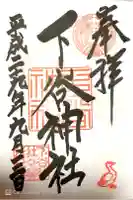 奉拝
下谷神社
平成二九年九月三日